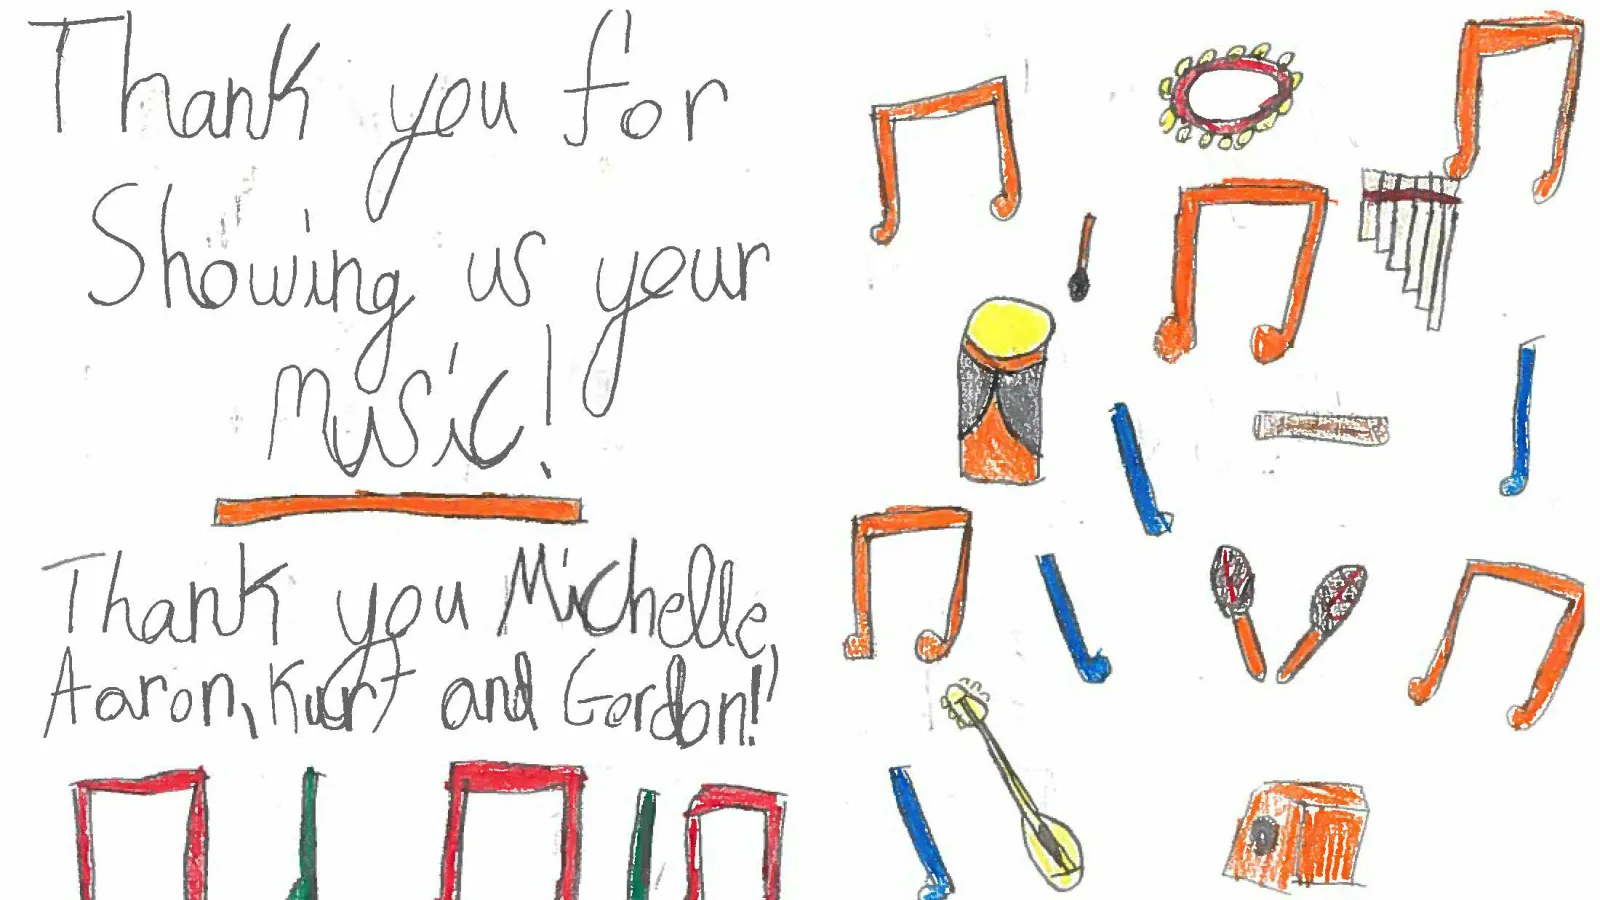 Thank you for
Showing us your
Music!
Thank you Michelle,
Aaron, Kurt and Gordon!